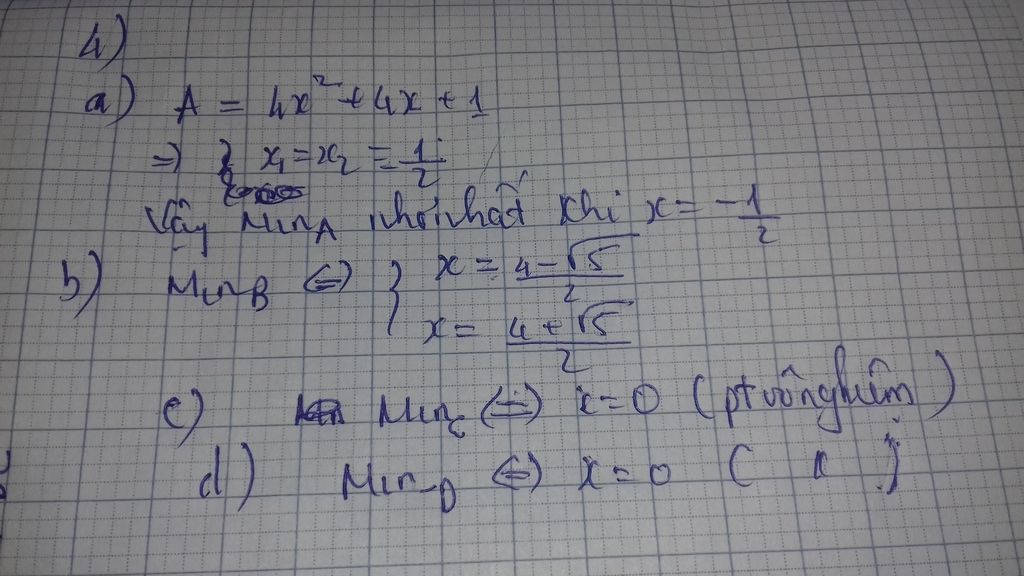 4)
a) A = 4x² + 4x + 1
=> } x₁ = x₂ = 1/2
Vậy Min_A nhỏ nhất khi x = -1/2
b) Min_B <=> } x = (4 - √5)/2
x = (4 + √5)/2
c) Min_C <=> x = 0 (pt vô nghiệm)
d) Min_D <=> x = 0 ( )